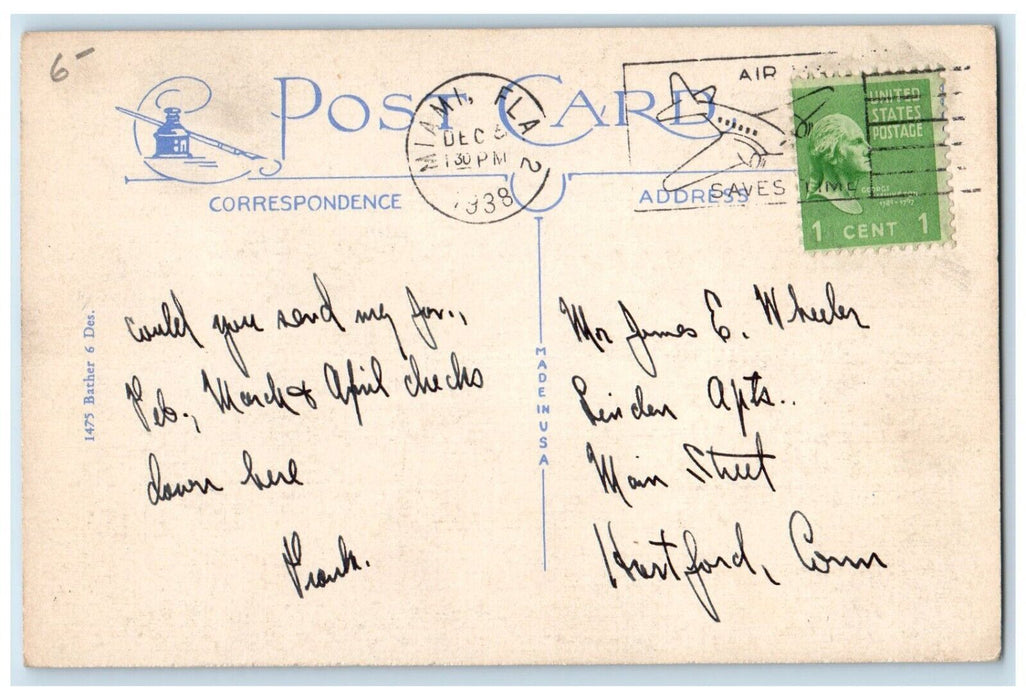 6-
POST CARD
MIAMI, FLA. 2
DEC 5
1 30 PM
1938
AIR MAIL
SAVES TIME
UNITED STATES POSTAGE
GEORGE WASHINGTON
1789-1797
1 CENT 1
CORRESPONDENCE
ADDRESS
1475 Bather 6 Des.
MADE IN USA
could you send my Jan.,
Feb., March & April checks
down here
Frank.
Mr James E. Wheeler
Linden Apts..
Main Street
Hartford, Conn